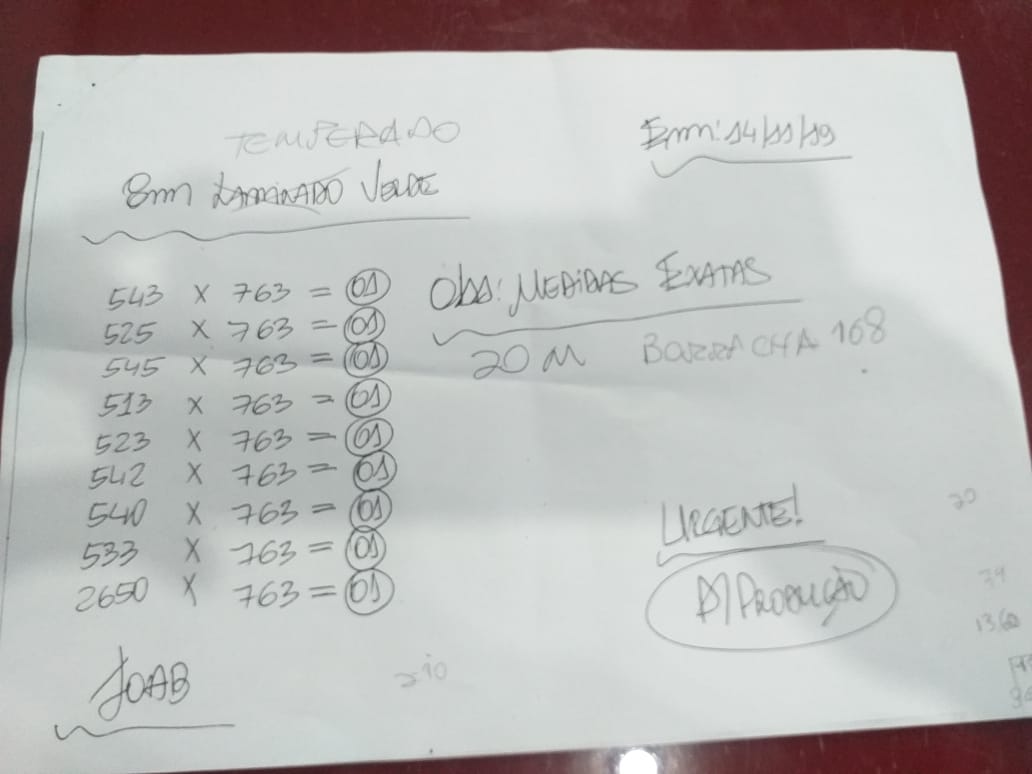 TEMPERADO
Em: 14/11/19
8mm LAMINADO VERDE
543 x 763 = 01
Obs: MEDIDAS EXATAS
525 x 763 = 01
20 M BORRACHA 168
545 x 763 = 01
513 x 763 = 01
523 x 763 = 01
542 x 763 = 01
540 x 763 = 01
URGENTE!
20
533 x 763 = 01
P/ PRODUÇÃO
2650 x 763 = 01
JOAB